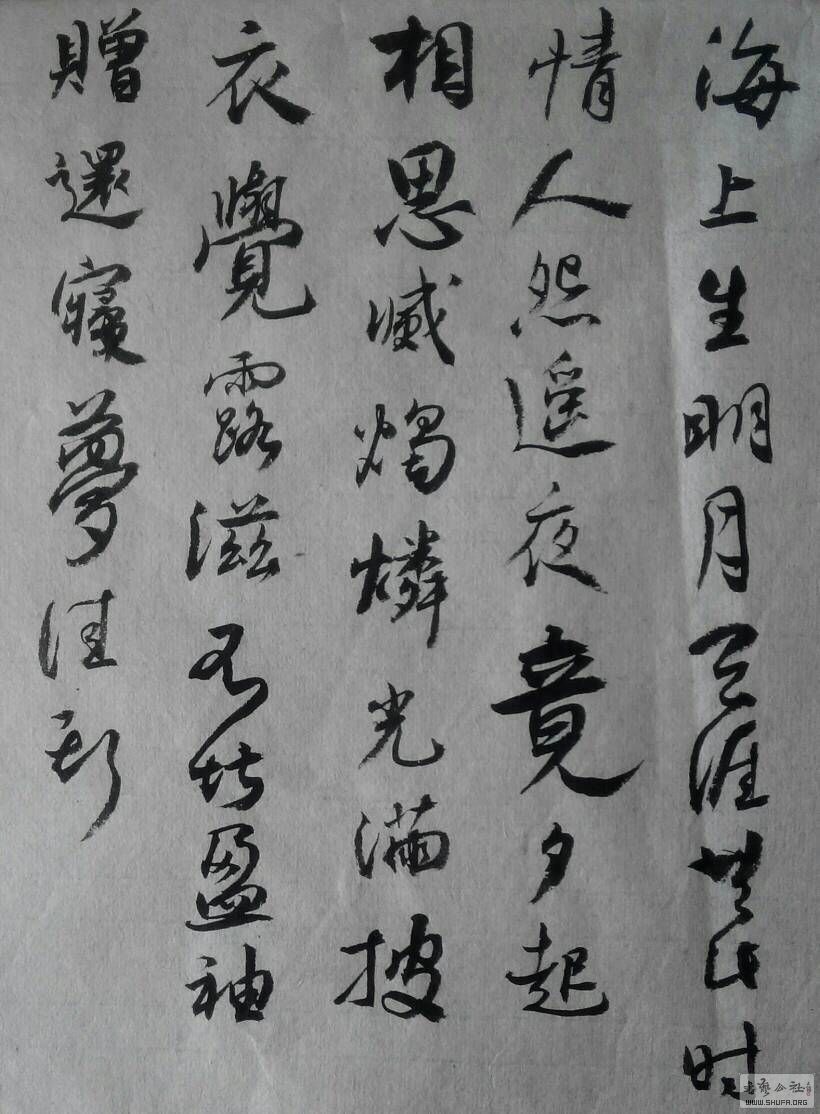 海上生明月天涯共此时
情人怨遥夜竟夕起
相思滅燭憐光滿披
衣覺露滋不堪盈袖
贈還寢夢佳期
书艺公社
WWW.SHUFA.ORG